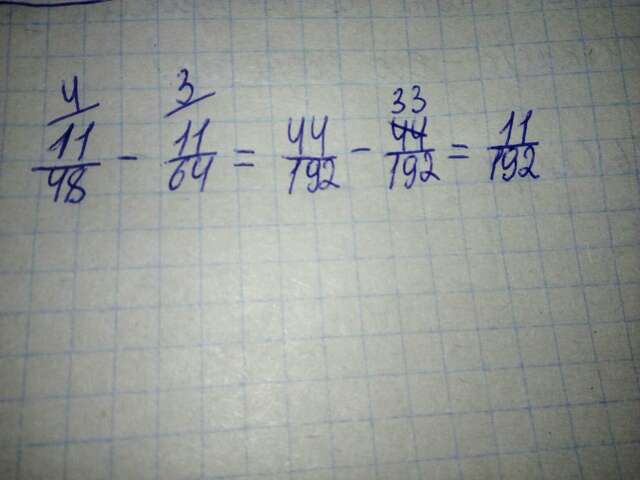 4/ 3/ 33
11/48 - 11/64 = 44/192 - 44/192 = 11/192